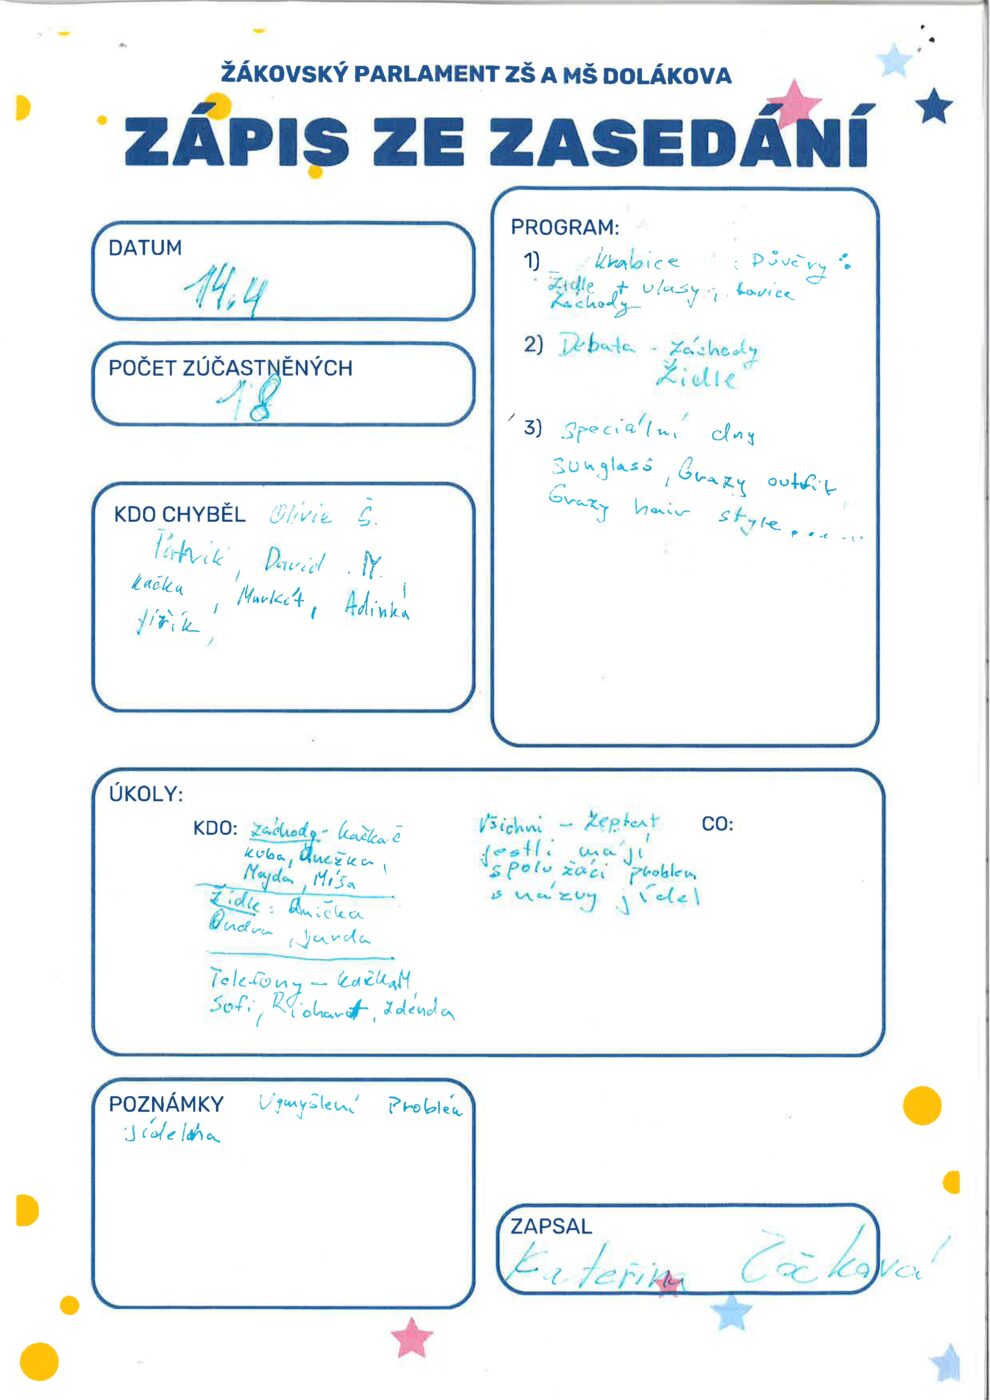 ŽÁKOVSKÝ PARLAMENT ZŠ A MŠ DOLÁKOVA
ZÁPIS ZE ZASEDÁNÍ
DATUM
14.4
POČET ZÚČASTNĚNÝCH
18
KDO CHYBĚL Olivie Š.
Patrik, David .M.
kačka, Markét, Adinka
jiřík,
PROGRAM:
1) Krabice : Důvěry :
Židle + vlasy, lavice
Záchody
2) Debata - záchody
Židle
3) speciální dny
sunglass, Crazy outfit
Crazy hair style.......
ÚKOLY:
KDO: záchody - kačka č
kuba, Anežka,
Majda, Míša
Židle : Anička
Ondra, Jarda
Telefony - kačka M,
Sofi, Richard, Zdenda
Všichni - Zeptat
jestli mají
spolu žáci problem
s názvy jídel
CO:
POZNÁMKY Vymyšlení Problém
jídelna
ZAPSAL
Kateřina